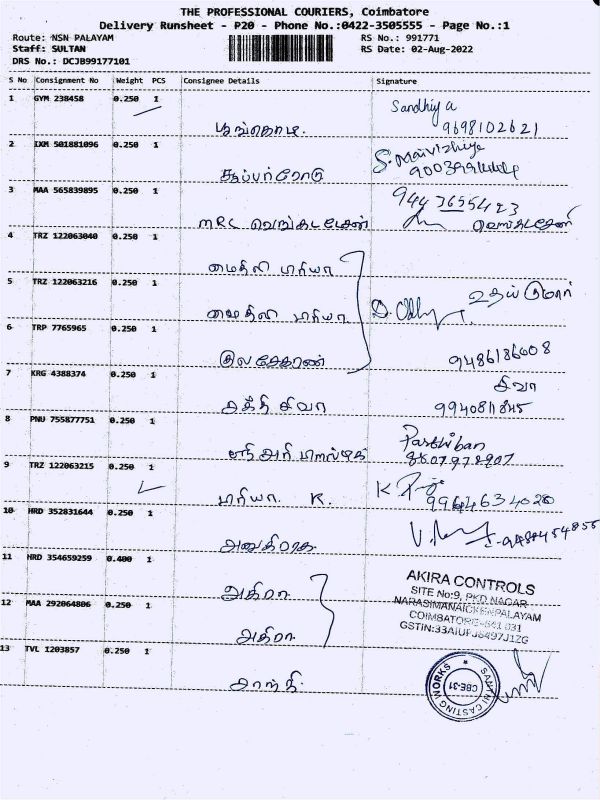 THE PROFESSIONAL COURIERS, Coimbatore
Delivery Runsheet - P20 - Phone No.:0422-3505555 - Page No.:1
Route: NSN PALAYAM RS No.: 991771
Staff: SULTAN RS Date: 02-Aug-2022
DRS No.: DCJB99177101
S No Consignment No Weight PCS Consignee Details Signature
1 GYM 238458 0.250 1 Sandhiya
பூங்கொடி. 9698102621
2 IXM 501881096 0.250 1
சூப்பர்ரோடு
3 MAA 565839895 0.250 1 944 3655423
MRC வெங்கடடேசன் வெங்கடேசன்
4 TRZ 122063040 0.250 1
மைதிலி மரியா
5 TRZ 122063216 0.250 1 உதய குமார்
மைதிலி மரியா
6 TRP 7765965 0.250 1
குலசேகரன் 9486186608
7 KRG 4388374 0.250 1 சிவா
சக்தி சிவா 9940811845
8 PNU 755877751 0.250 1 Parthiban
ஸ்ரீ அரி 8807978907
9 TRZ 122063215 0.250 1
மரியா K.
10 HRD 352831644 0.250 1
11 HRD 354659259 0.400 1
அதிரா
AKIRA CONTROLS
SITE No:9, PKD NAGAR
12 MAA 292064806 0.250 1 NARASIMANAICKENPALAYAM
அதிரா COIMBATORE-641 031
13 TVL 1203857 0.250 1
சாந்தி.
CASTING WORKS
CBE-31